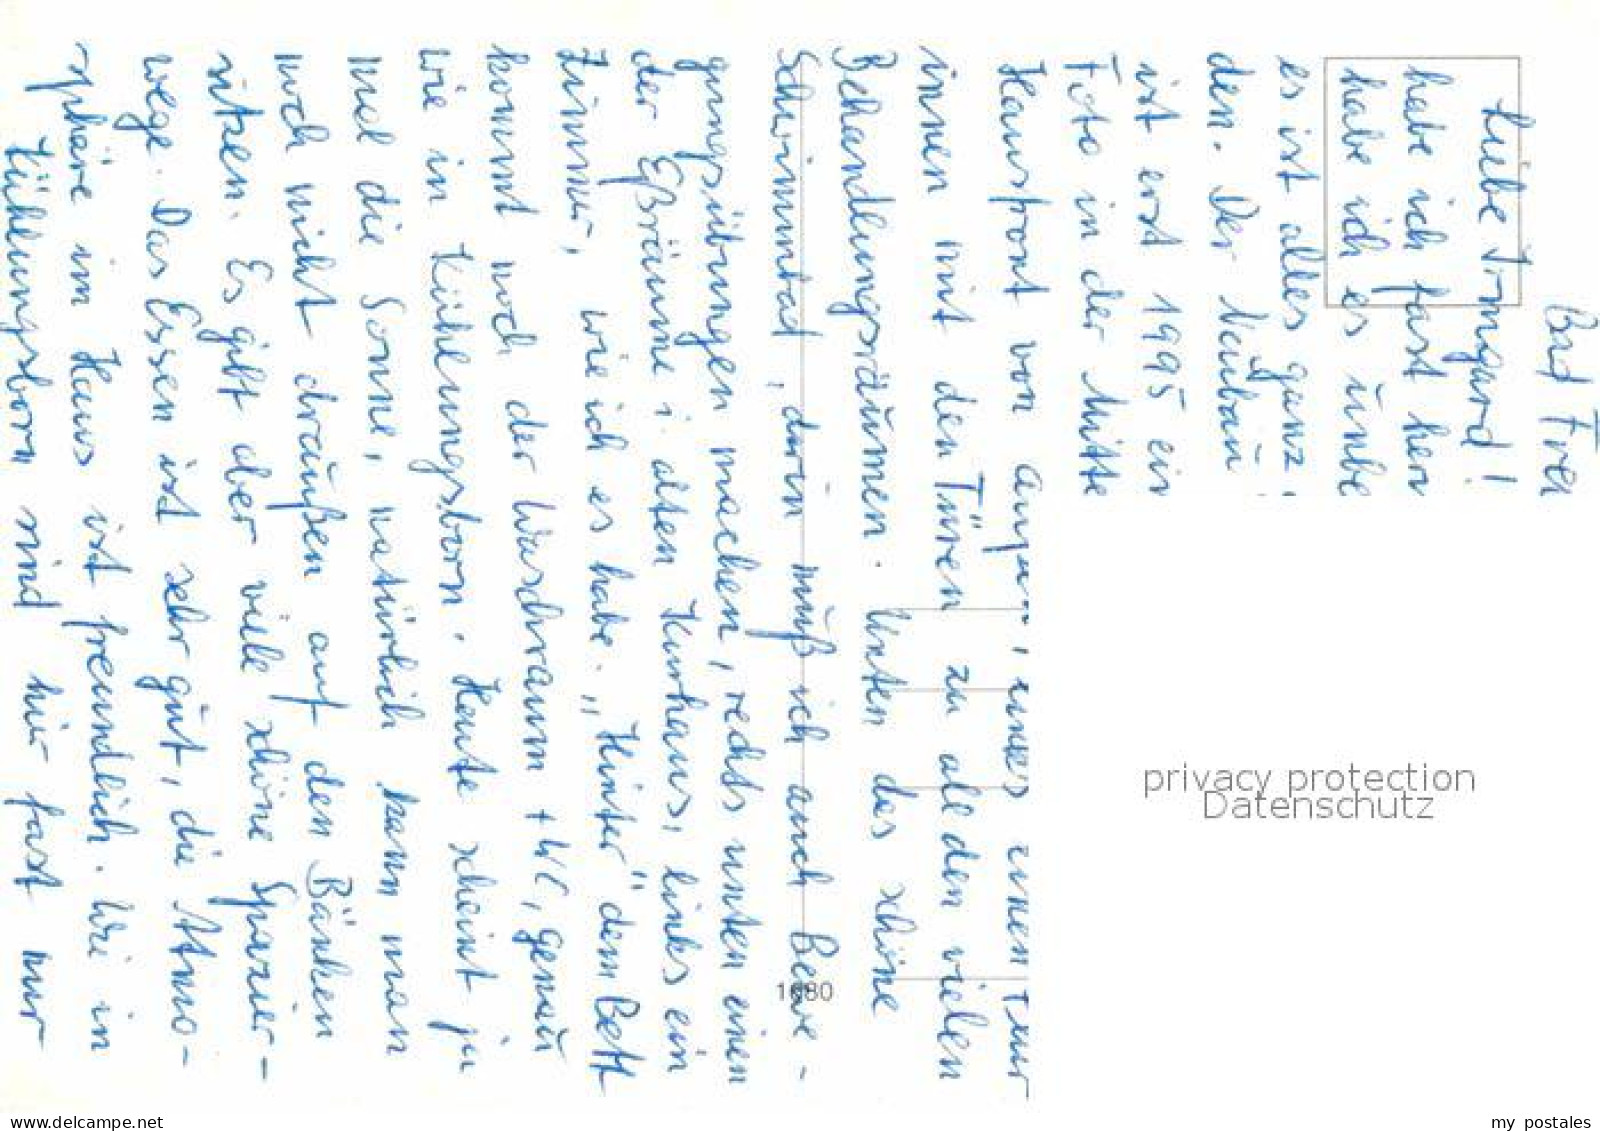 Bad Frei
Liebe Irmgard!
habe ich fast her
habe ich es
es ist alles ganz
den. Der Neubau
ist erst 1995 ein
Foto in der Mitte
Hausfront von einen Flur
innen mit den Türen zu all den vielen
Behandlungsräumen. Unten das schöne
Schwimmbad, darin muß ich auch Bewe-
gungsübungen machen, rechts unten einen
der Eßräume i. alten Kurhaus, links ein
Zimmer, wie ich es habe. „Hinter" dem Bett
kommt noch der Waschraum + WC, genau
wie in Kühlungsborn. Heute scheint ja
mal die Sonne, natürlich kann man
noch nicht draußen auf den Bänken
sitzen. Es gibt aber viele schöne Spazier-
wege. Das Essen ist sehr gut, die Atmo-
sphäre im Haus ist freundlich. Wie in
Kühlungsborn sind hier fast nur
1680
privacy protection
Datenschutz
www.delcampe.net
my_postales